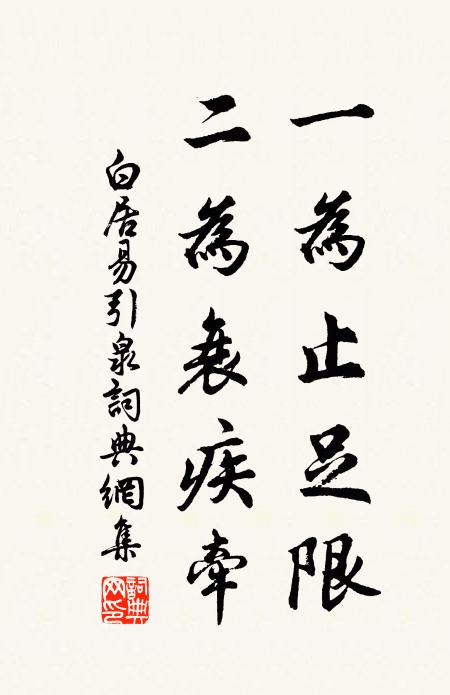 一為止足限
二為衰疾牽
白居易引泉詞典網集
詞典
网印